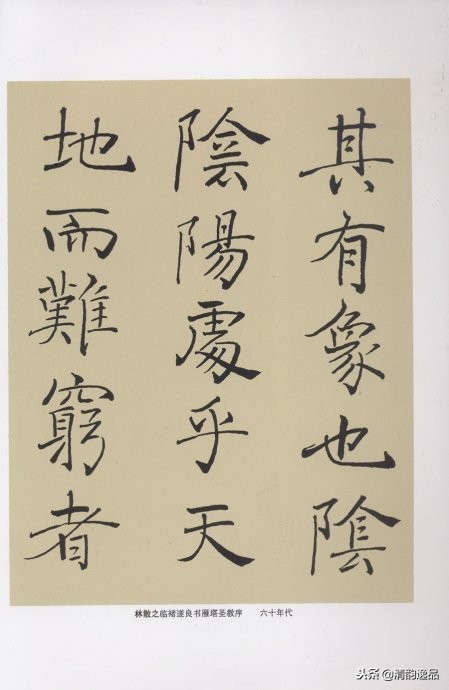 其有象也陰
陰陽處乎天
地而難窮者
林散之临褚遂良书雁塔圣教序 六十年代
头条 @清韵逸品